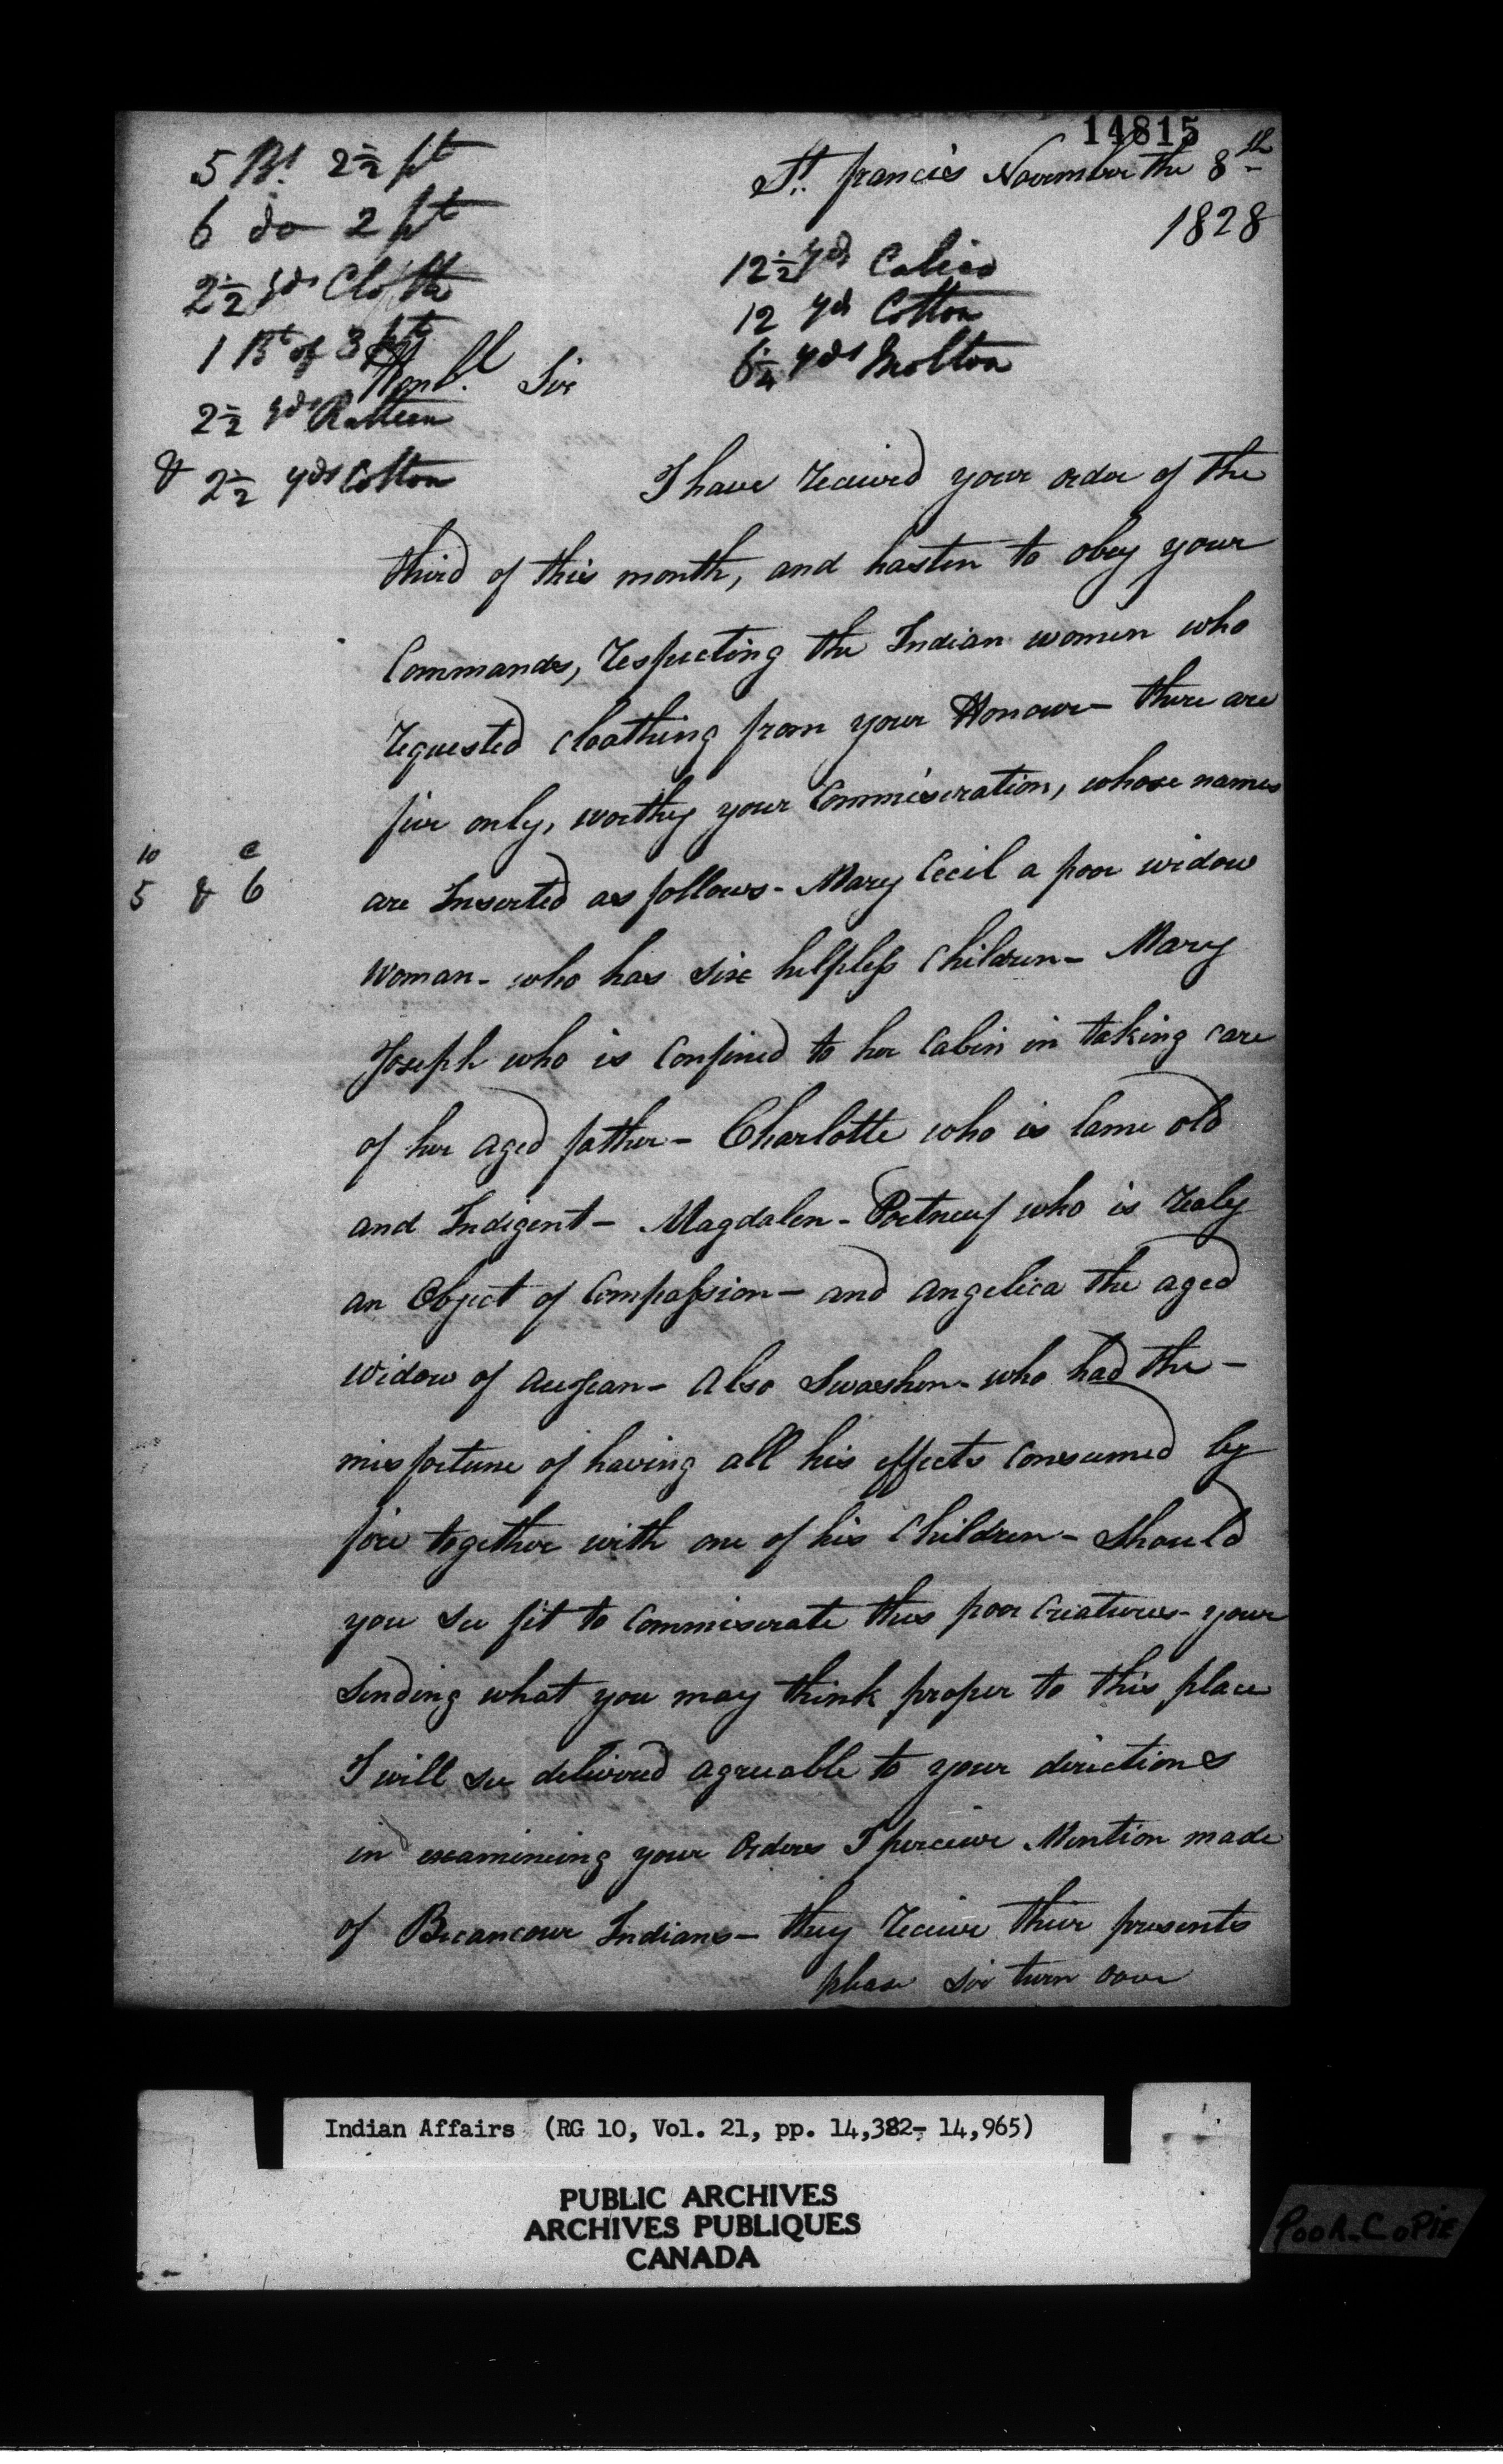 14815
5 Bt. 2½ pt
6 do 2 pt
2½ yds Cloth
1 Bt of 3 pt
2½ yds Ratteen
& 2½ yds Cotton
St. francis November the 8th
1828
12½ yds Calico
12 yds Cotton
6¼ yds Molton
Honbl. Sir
I have received your order of the
third of this month, and hasten to obey your
Commands, respecting the Indian women who
requested cloathing from your Honour - there are
five only, worthy your Commiseration, whose names
are Inserted as follows - Mary Cecil a poor widow
woman - who has six helpless Children - Mary
Joseph who is Confined to her Cabin in taking care
of her aged father - Charlotte who is lame old
and Indigent - Magdalen - Portneuf who is realy
an Object of Compassion - and angelica the aged
widow of - also - who had the -
misfortune of having all his effects Consumed by
fire together with one of his Children - Should
you see fit to Commiserate thes poor Creatures - your
Sending what you may think proper to this place
I will see delivered agreeable to your directions
in examineing your Orders I perceive Mention made
of Becancour Indians - they receive their presents
please sir turn over
10 c
5 & 6
Indian Affairs (RG 10, Vol. 21, pp. 14,382- 14,965)
PUBLIC ARCHIVES
ARCHIVES PUBLIQUES
CANADA
POOR COPIE